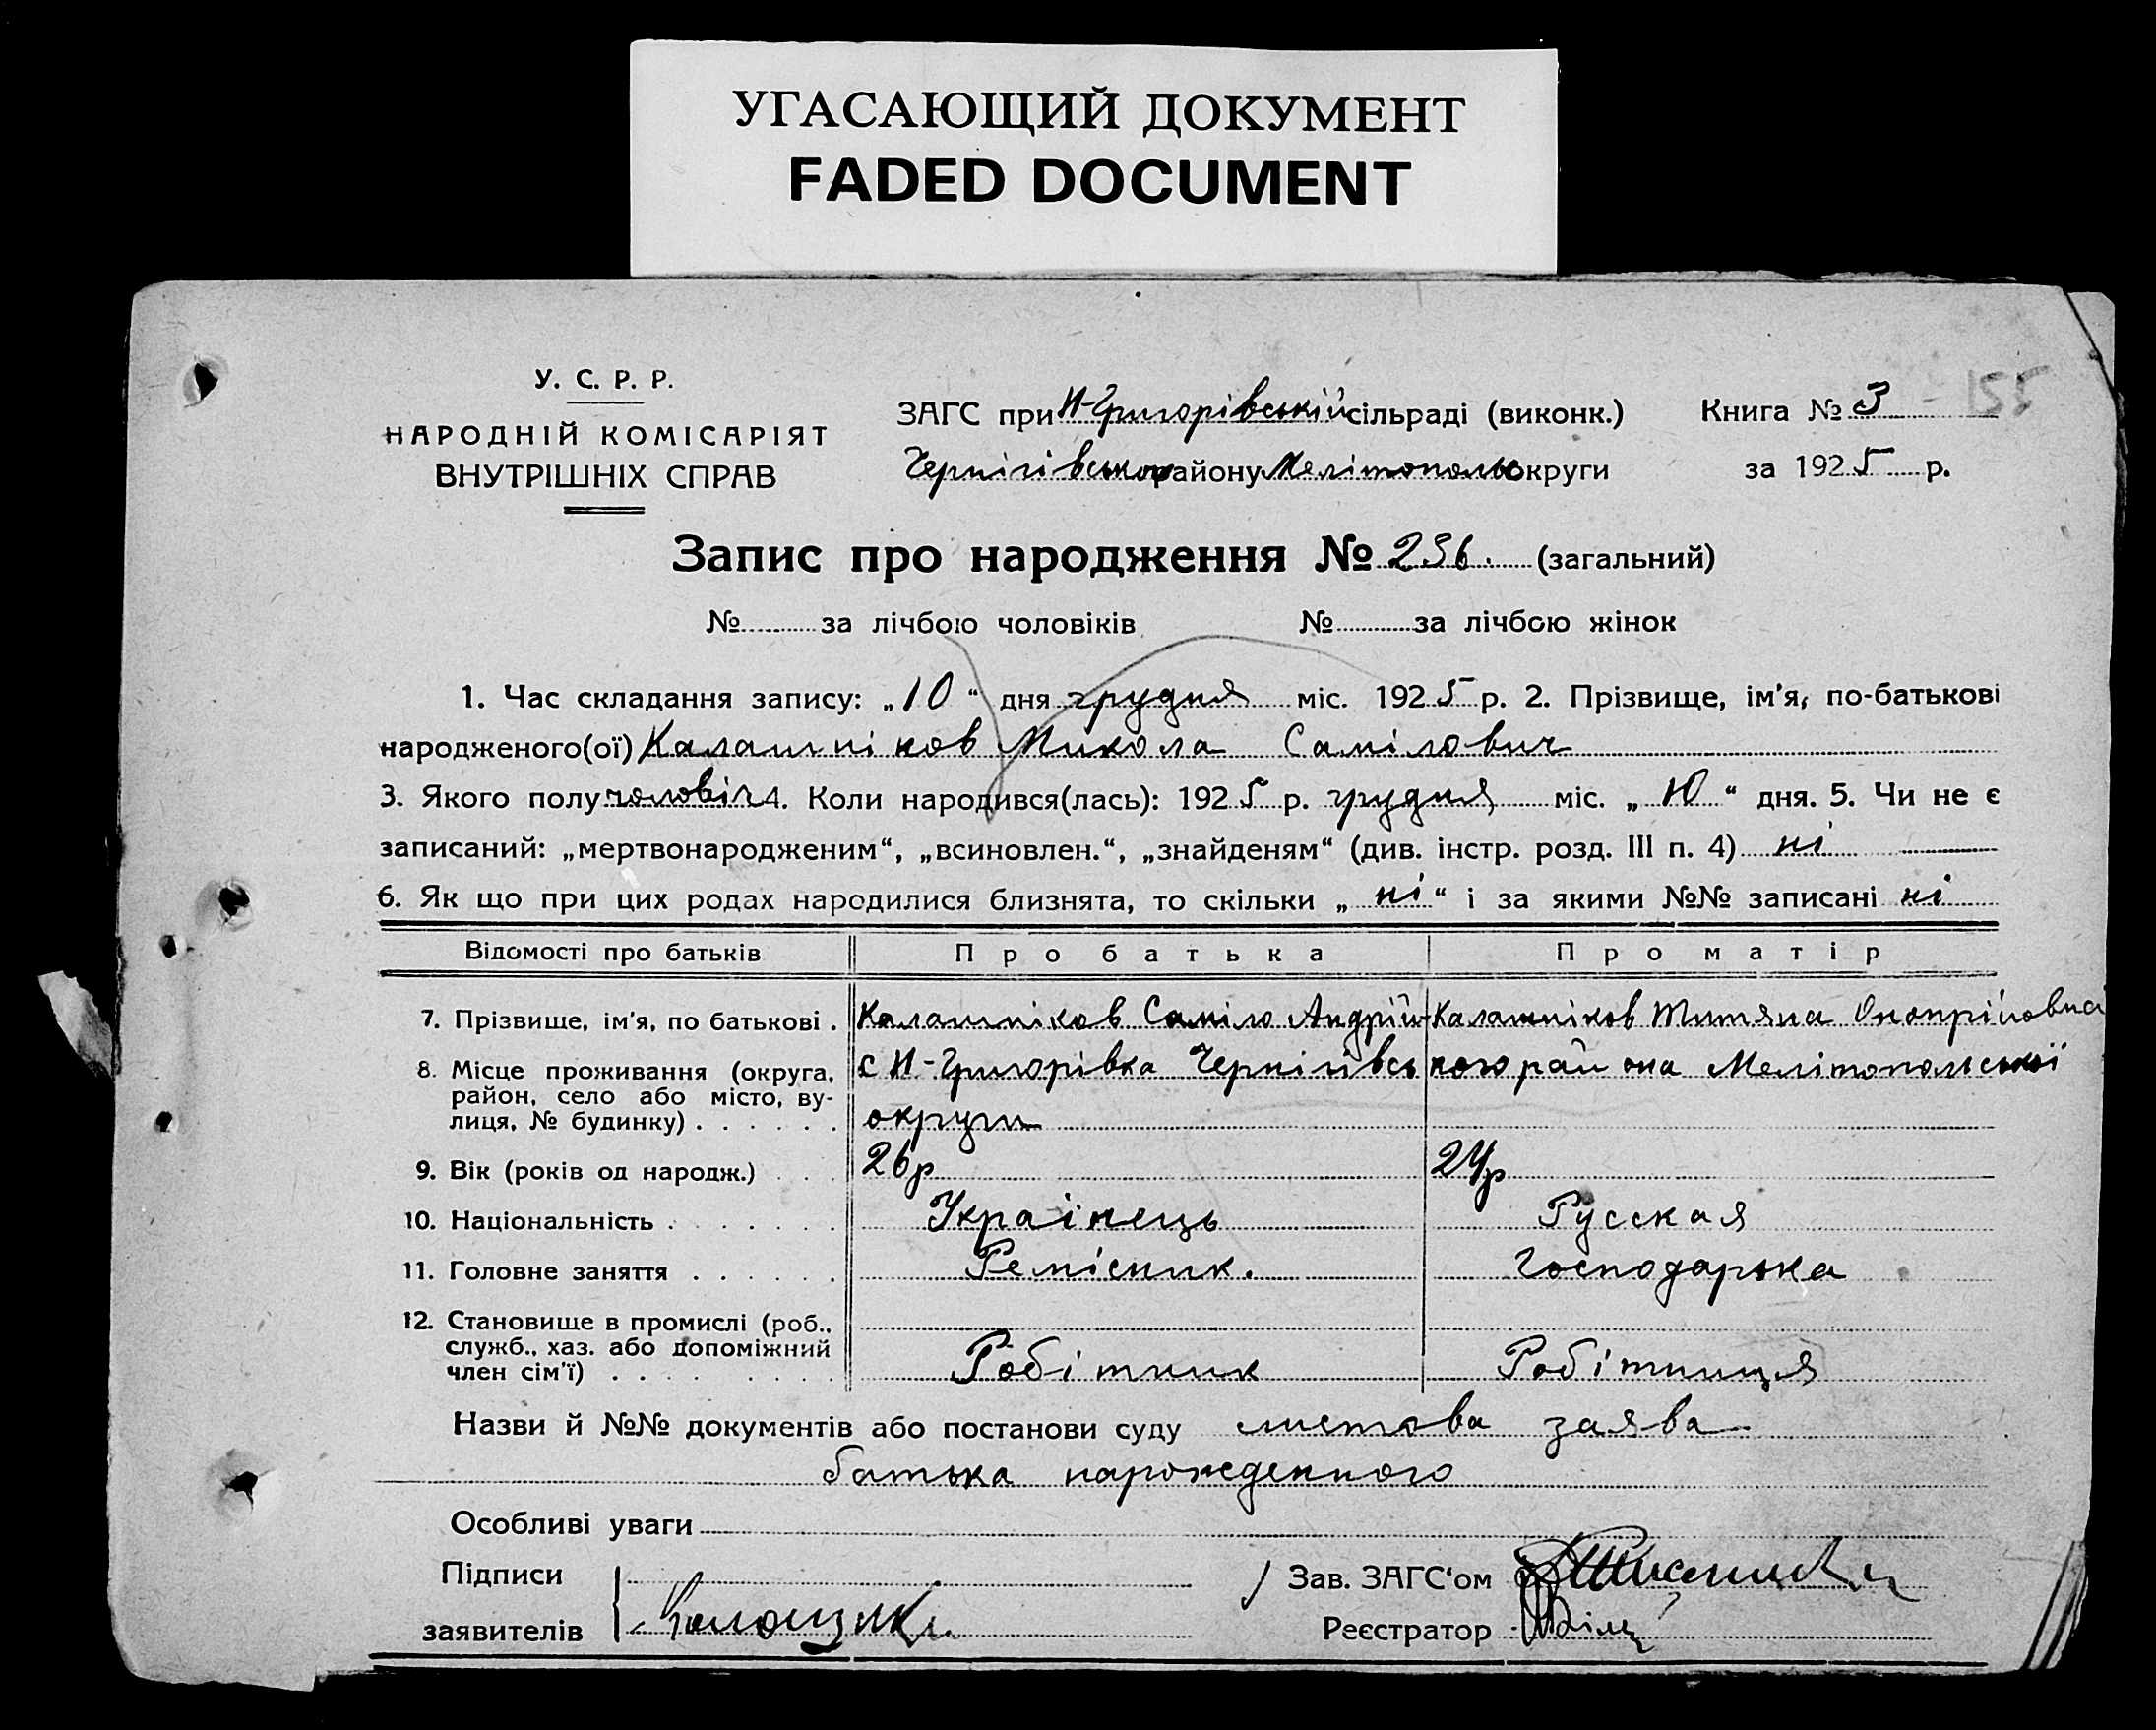 УГАСАЮЩИЙ ДОКУМЕНТ
FADED DOCUMENT
У. С. Р. Р.
НАРОДНІЙ КОМІСАРІЯТ
ВНУТРІШНІХ СПРАВ
ЗАГС при Н-Григорівській сільраді (виконк.)
Чернігівського району Мелітопольс округи
Книга № 3 - 155
за 1925 р.
Запис про народження № 236. (загальний)
№ за лічбою чоловіків № за лічбою жінок
1. Час складання запису: „10“ дня грудня міс. 1925 р. 2. Прізвище, ім'я, по-батькові
народженого(ої) Калашніков Микола Самілович
3. Якого полу чоловіч 4. Коли народився(лась): 1925 р. грудня міс. „10“ дня. 5. Чи не є
записаний: „мертвонародженим“, „всиновлен.“, „знайденям“ (див. інстр. розд. III п. 4) ні
6. Як що при цих родах народилися близнята, то скільки „ні“ і за якими №№ записані ні
Відомості про батьків Про батька Про матір
7. Прізвище, ім'я, по батькові . Калашніков Саміло Андрій- Калашніков Титяна Онопрійовна
8. Місце проживання (округа, с Н-Григорівка Чернігівсь кого район она Мелітопольської
район, село або місто, ву-
лиця, № будинку) . . . . . . округи
9. Вік (років од народж.) . . . 26р 24р
10. Національність . . . . . . . Українець Русская
11. Головне заняття . . . . . . Ремісник. Господарька
12. Становище в промислі (роб.,
служб., хаз. або допоміжний
член сім'ї) . . . . . . . . Робітник Робітниця
Назви й №№ документів або постанови суду листова заява
батька нарожденного
Особливі уваги
Підписи
заявителів
Зав. ЗАГС'ом
Реєстратор